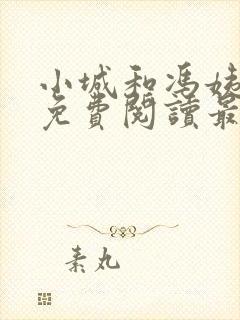 小城和馮姊
免費閱讀最
素丸